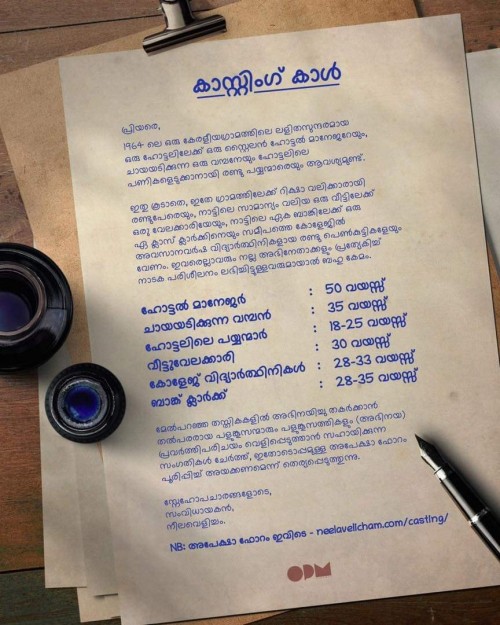 കാസ്റ്റിംഗ് കാൾ
പ്രിയരെ,
1964 ലെ ഒരു കേരളീയഗ്രാമത്തിലെ ലളിതസുന്ദരമായ
ഒരു ഹോട്ടലിലേക്ക് ഒരു സ്റ്റൈലൻ ഹോട്ടൽ മാനേജറേയും,
ചായയടിക്കുന്ന ഒരു വമ്പനേയും ഹോട്ടലിലെ
പണികളെടുക്കാനായി രണ്ടു പയ്യന്മാരെയും ആവശ്യമുണ്ട്.
ഇതു കൂടാതെ, ഇതേ ഗ്രാമത്തിലേക്ക് റിക്ഷാ വലിക്കാരായി
രണ്ടുപേരെയും, നാട്ടിലെ സാമാന്യം വലിയ ഒരു വീട്ടിലേക്ക്
ഒരു വേലക്കാരിയേയും, നാട്ടിലെ ഏക ബാങ്കിലേക്ക് ഒരു
ഏ ക്ലാസ് ക്ലാർക്കിനെയും സമീപത്തെ കോളേജിൽ
അവസാനവർഷ വിദ്യാർത്ഥിനികളായ രണ്ടു പെൺകുട്ടികളേയും
വേണം. ഇവരെല്ലാവരും നല്ല അഭിനേതാക്കളും പ്രത്യേകിച്ച്
നാടക പരിശീലനം ലഭിച്ചിട്ടുള്ളവരുമായാൽ ബഹു കേമം.
ഹോട്ടൽ മാനേജർ : 50 വയസ്സ്
ചായയടിക്കുന്ന വമ്പൻ : 35 വയസ്സ്
ഹോട്ടലിലെ പയ്യന്മാർ : 18-25 വയസ്സ്
വീട്ടുവേലക്കാരി : 30 വയസ്സ്
കോളേജ് വിദ്യാർത്ഥിനികൾ : 28-33 വയസ്സ്
ബാങ്ക് ക്ലാർക്ക് : 28-35 വയസ്സ്
മേൽപറഞ്ഞ തസ്തികകളിൽ അഭിനയിച്ചു തകർക്കാൻ
തൽപരരായ പുരുഷന്മാരും (അഭിനയ)
പ്രവർത്തിപരിചയം വെളിപ്പെടുത്താൻ സഹായിക്കുന്ന
സംഗതികൾ ചേർത്ത്, ഇതോടൊപ്പമുള്ള അപേക്ഷാ ഫോറം
പൂരിപ്പിച്ച് അയക്കണമെന്ന് തെര്യപ്പെടുത്തുന്നു.
സ്നേഹോപചാരങ്ങളോടെ,
സംവിധായകൻ,
നീലവെളിച്ചം.
NB: അപേക്ഷാ ഫോറം ഇവിടെ - neelavelicham.com/casting/
OPM